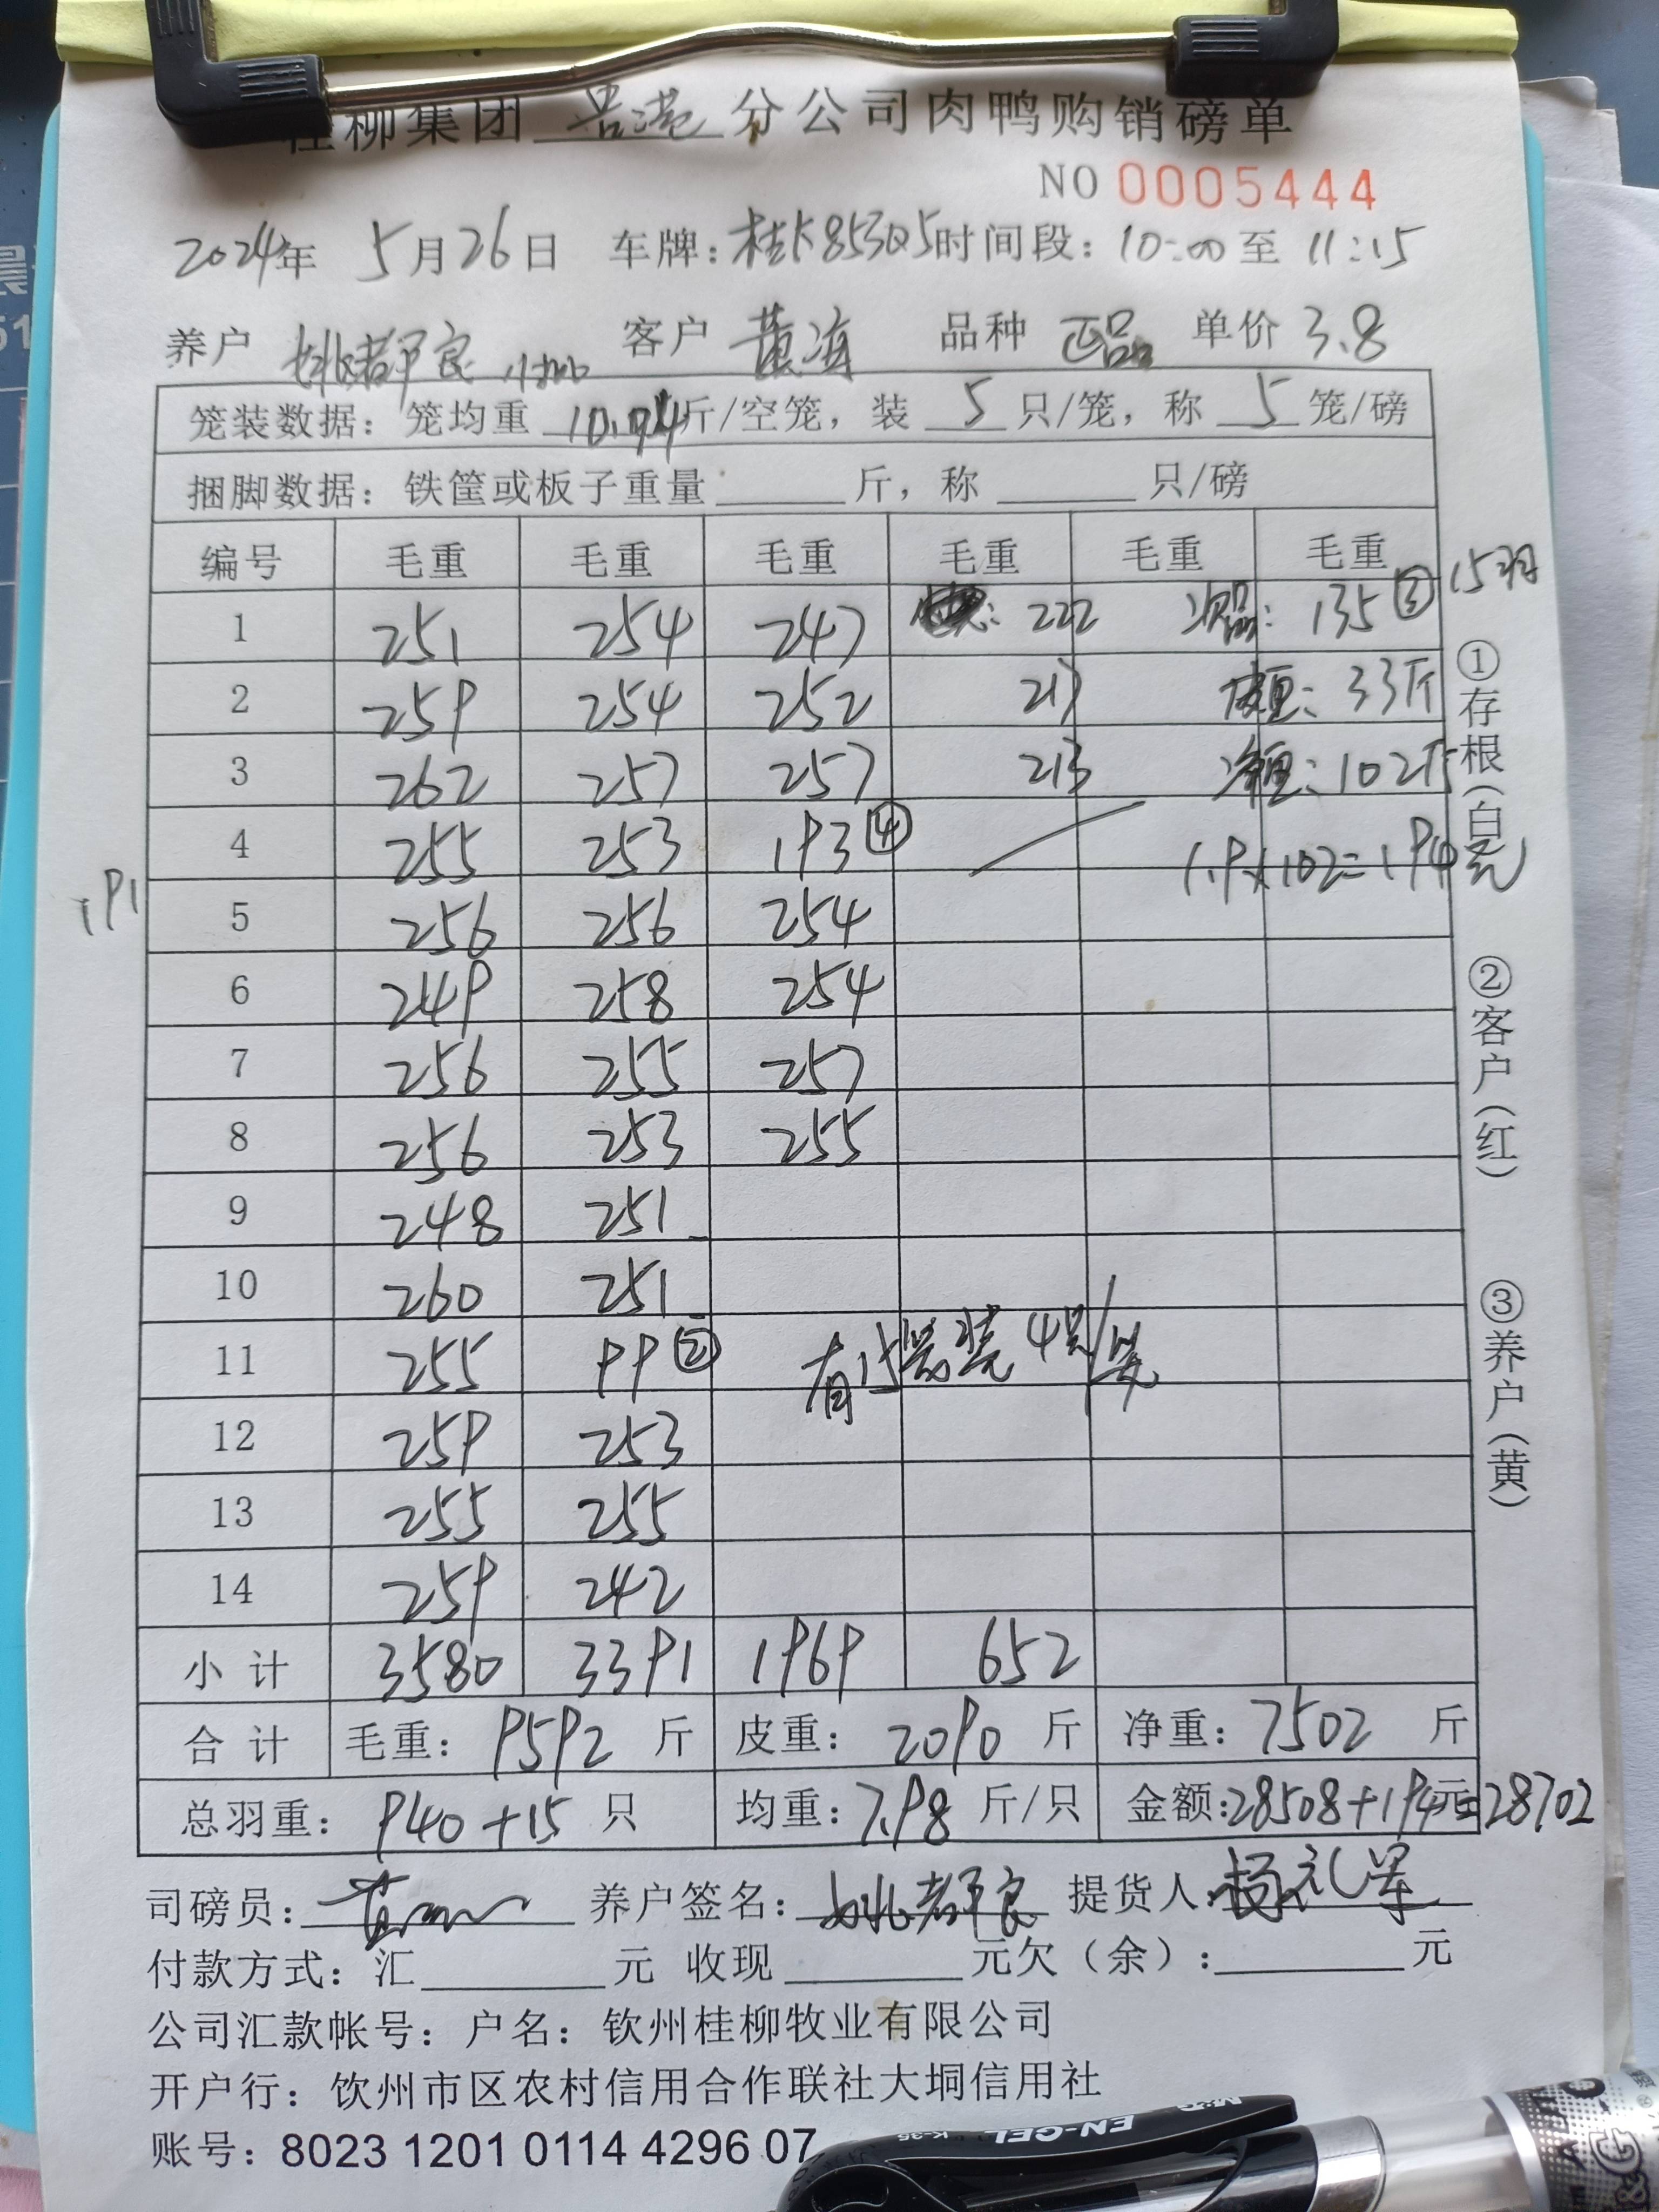 桂柳集团 贵港 分公司肉鸭购销磅单
NO 0005444
2024年 5月26日 车牌：桂K85305时间段：10:00至 11:15
养户 姚都良 客户 黄海 品种 正品 单价 3.8
笼装数据：笼均重 斤/空笼，装 5 只/笼，称 5 笼/磅
捆脚数据：铁筐或板子重量 斤，称 只/磅
编号 毛重 毛重 毛重 毛重 毛重 毛重
1 251 254 247 : 222 次品: 135③ 15羽
2 259 254 252 217 皮重: 33斤
3 262 257 257 213 净重: 102斤
4 255 253 193④ 1.9×102=194元
191
5 256 256 254
6 249 258 254
7 256 255 257
8 256 253 255
9 248 251
10 260 251
11 255 99② 有15笼装4只/笼
12 259 253
13 255 255
14 259 242
小计 3580 3391 1969 652
合计 毛重：9592 斤 皮重：2090 斤 净重：7502 斤
总羽重：940+15 只 均重：7.98 斤/只 金额:28508+194元=28702
司磅员： 养户签名：姚都良 提货人 杨礼军
付款方式：汇 元 收现 元欠（余）： 元
公司汇款帐号：户名：钦州桂柳牧业有限公司
开户行：钦州市区农村信用合作联社大垌信用社
账号：8023 1201 0114 4296 07
①存根（白）
②客户（红）
③养户（黄）
EN-GEL
K-35
M&G